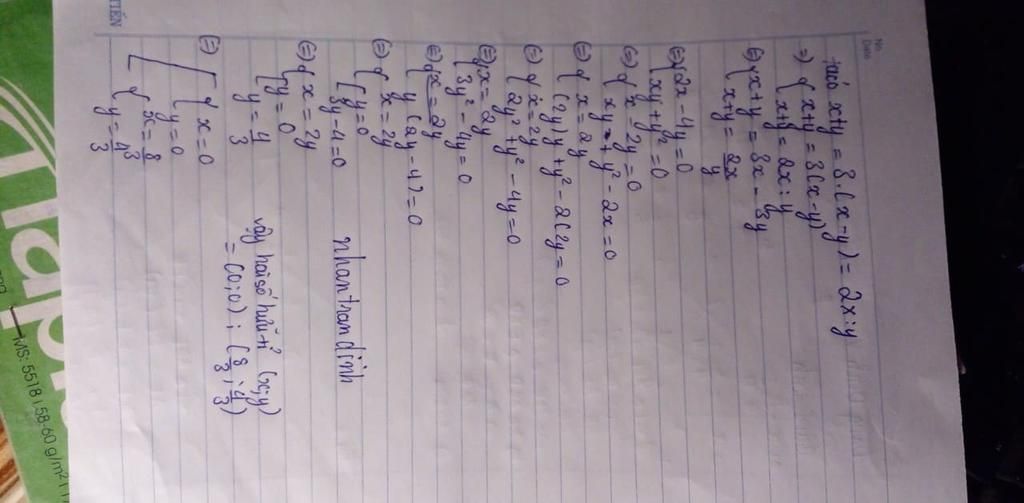 No.
Date
x+y = 3.(x-y) = 2x:y
⇒ { x+y = 3(x-y)
{ x+y = 2x:y
⇔ { x+y = 3x - 3y
{ x+y = 2x/y
⇔ { 2x - 4y = 0
{ xy + y² = 0
⇔ { x - 2y = 0
{ xy + y² - 2x = 0
⇔ { x = 2y
{ (2y)y + y² - 2(2y = 0
⇔ { x = 2y
{ 2y² + y² - 4y = 0
⇔ { x = 2y
{ 3y² - 4y = 0
⇔ { x = 2y
{ y(2y - 4) = 0
⇔ { x = 2y
[ y = 0
3y - 4 = 0
nhantrandinh
⇔ { x = 2y
[ y = 0
y = 4/3
vậy hai số hữu tỉ (x;y)
= (0;0) ; (8/3 ; 4/3)
⇔ [ { x = 0
y = 0
{ x = 8/3
y = 4/3
TIẾN
MS: 5518 ; 58-60 g/m²